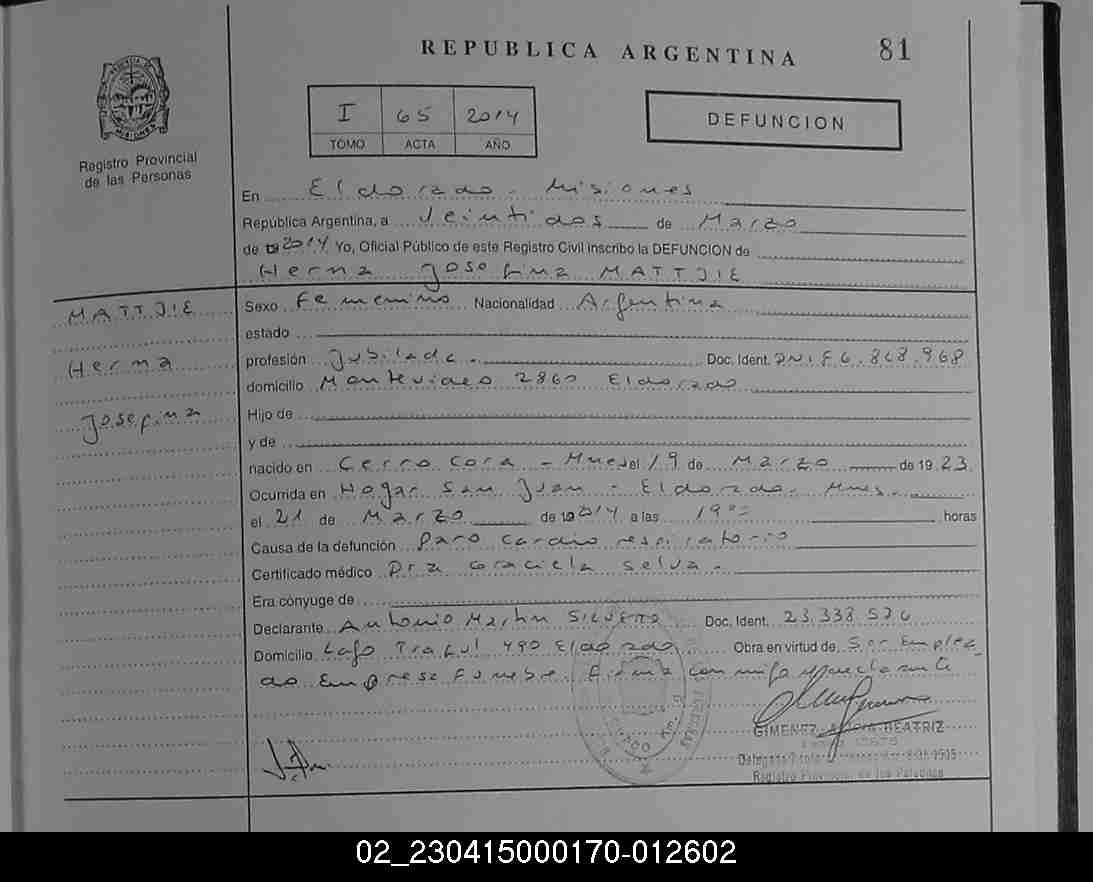 REPUBLICA ARGENTINA 81
Registro Provincial
de las Personas
I 65 2014
TOMO ACTA AÑO
DEFUNCION
En Eldorado - Misiones
República Argentina, a Veintidos de Marzo
de 2014 Yo, Oficial Público de este Registro Civil inscribo la DEFUNCION de
Herma Josefina MATTJIE
MATTJIE
Herma
Josefina
Sexo Femenino Nacionalidad Argentina
estado
profesión Jubilada. Doc. Ident. DNI F6.868.968
domicilio Montevideo 2860 Eldorado
Hijo de
y de
nacido en Cerro Cora - Mnes el 19 de Marzo de 1923
Ocurrida en Hogar San Juan - Eldorado. Mnes.
el 21 de Marzo de 2014 a las 19 horas
Causa de la defunción Paro Cardio respiratorio
Certificado médico Dra Graciela Selva.
Era cónyuge de
Declarante Antonio Martin Doc. Ident. 23.338.576
Domicilio Lago 490 Eldorado. Obra en virtud de Ser Emplea
do Empresa Funebre. Firma conmigo el declarante
GIMENEZ ALICIA BEATRIZ
Registro Provincial de las Personas
02_230415000170-012602